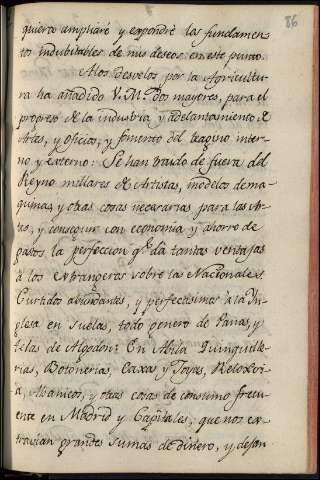 86
quiera ampliaré y expondré los fundamen
tos indubitables de mis deseos en este punto.
A los desvelos por la Agricultu
ra ha añadido V.M. dos mayores, para el
progreso de la industria y adelantamiento de
Artes, y Oficios, y fomento del tragino inter-
no, y externo: Se han traido de fuera del
Reyno millares de Artistas, modelos de ma-
quinas, y otras cosas necesarias para las Ar-
tes, y conseguir con economía y ahorro de
gastos la perfeccion qe. da tantas ventajas
à los extrangeros sobre los Nacionales.
Curtidos abundantes, y perfectisimos à la In-
glesa en Suelas, todo genero de Panas, y
telas de Algodon: En Avila Quinquille-
rias, Botonerias, Caxas y Joyas, Reloxeri-
a, Abanicos, y otras cosas de consumo frecu-
ente en Madrid y Capitales, que nos ex-
travian grandes sumas de dinero, y dejan